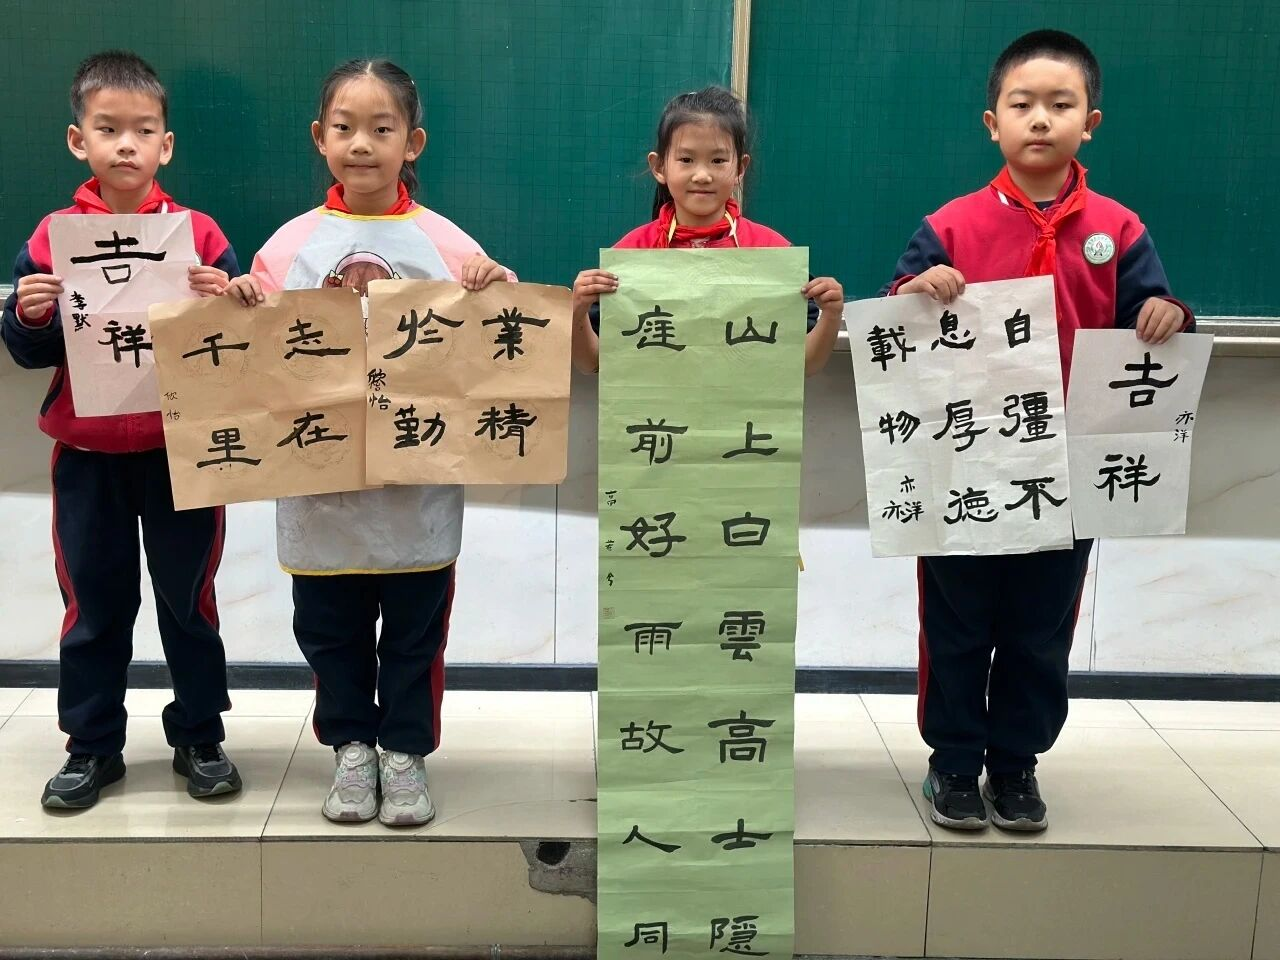 吉祥
李默
志在
千里
欣怡
業精
於勤
怡
山上白雲高士隱
庭前好雨故人同
高若兮
自彊不
息厚德
載物
亦洋
亦
吉祥
亦洋